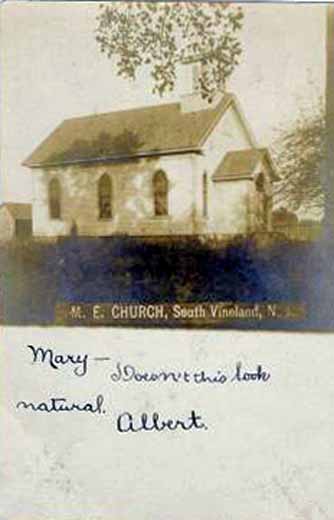 M. E. CHURCH, South Vineland, N. J.
Mary — Doesn't this look
natural.
Albert.